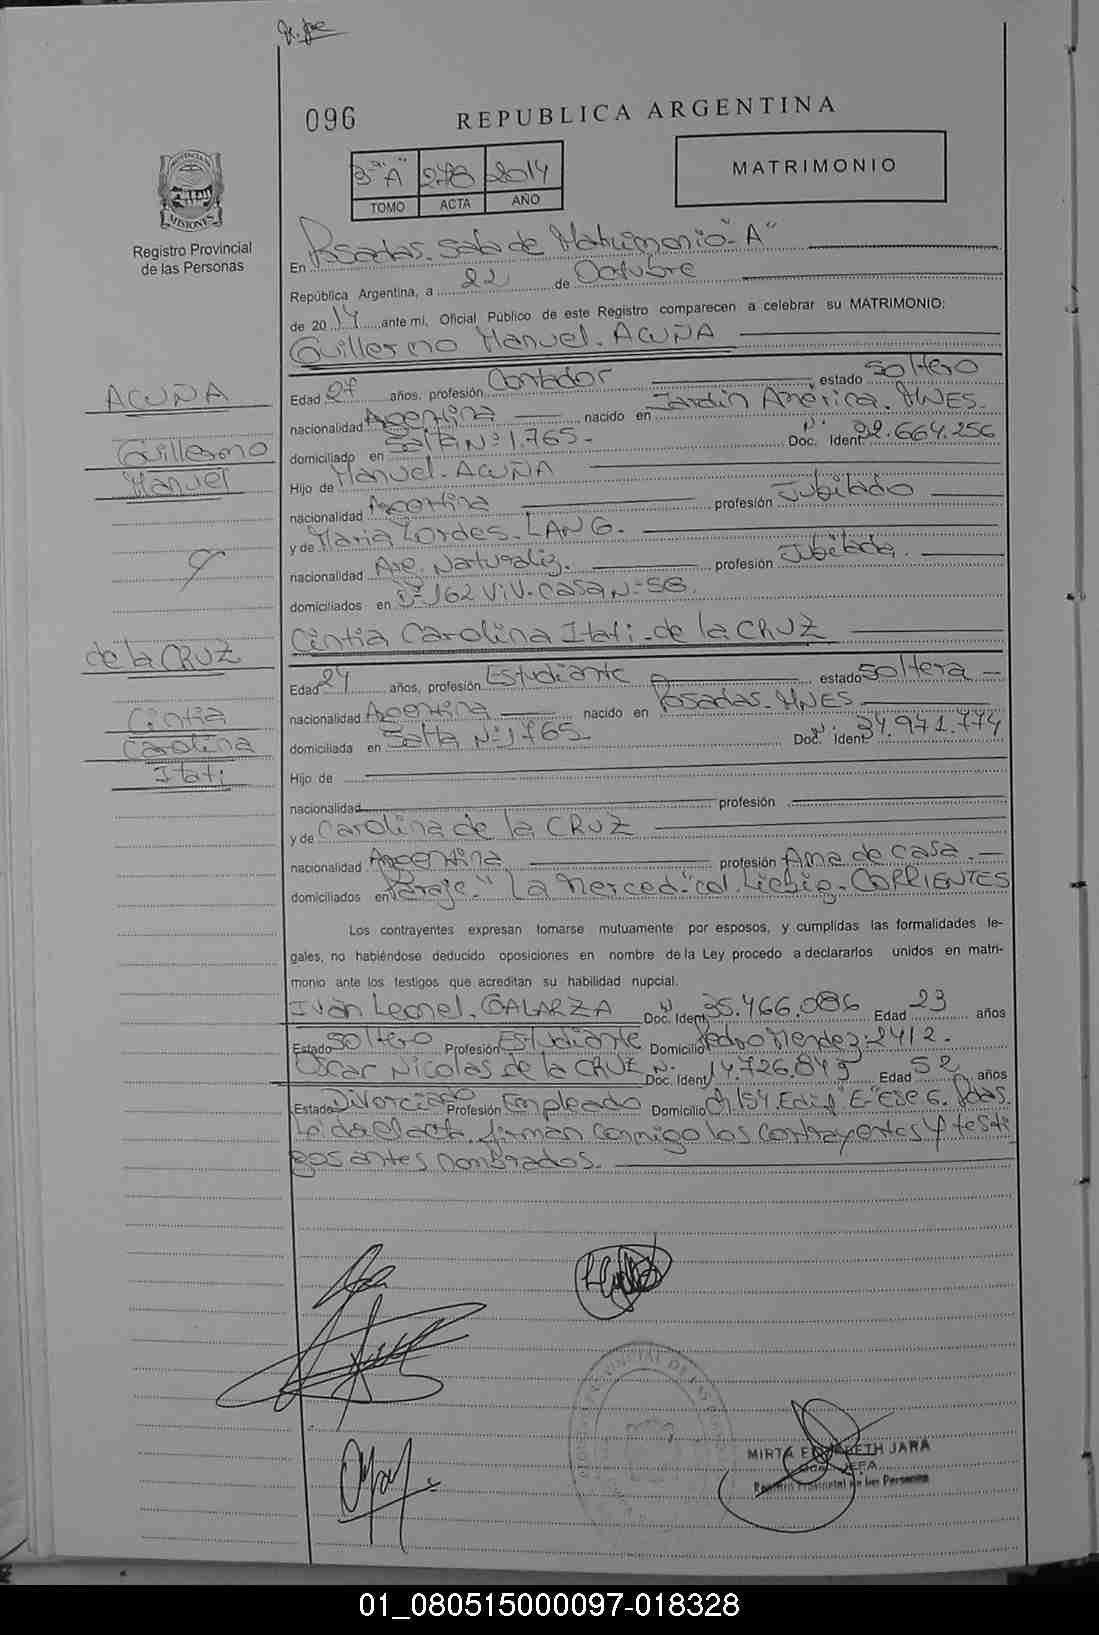 096
REPUBLICA ARGENTINA
3º "A" 278 2014
TOMO ACTA AÑO
MATRIMONIO
PROVINCIA DE MISIONES
Registro Provincial
de las Personas
En Posadas. Sala de Matrimonio-"A"
República Argentina, a 22 de Octubre
de 2014 ante mi, Oficial Público de este Registro comparecen a celebrar su MATRIMONIO:
Guillermo Manuel. ACUÑA
ACUÑA
Guillermo
Manuel
Edad años, profesión Contador estado soltero
nacionalidad Argentina nacido en Jardín América. MNES.
domiciliado en Salta Nº 1.765.- Doc. Ident. 664.256
Hijo de Manuel. ACUÑA
nacionalidad Argentina profesión Jubilado
y de Maria Lordes. LANG.
nacionalidad Arg. Naturaliz. profesión Jubilada.
domiciliados en 162 Viv. Casa Nº 58.
Cintia Carolina Itati. de la CRUZ
de la CRUZ
Cintia
Carolina
Itati
Edad 24 años, profesión Estudiante estado soltera
nacionalidad Argentina nacido en Posadas. MNES
domiciliada en Salta Nº 1765. Doc. Ident. 34.941.774
Hijo de
nacionalidad profesión
y de Carolina de la CRUZ
nacionalidad Argentina profesión Ama de casa.
domiciliados en Paraje "La Merced" col. Liebig-CORRIENTES
Los contrayentes expresan tomarse mutuamente por esposos, y cumplidas las formalidades le-
gales, no habiéndose deducido oposiciones en nombre de la Ley procedo a declararlos unidos en matri-
monio ante los testigos que acreditan su habilidad nupcial.
Iván Leonel. GALARZA Doc. Ident. 35.466.086 Edad 23 años
Estado soltero Profesión Estudiante Domicilio Pedro Mendez 2412.
Oscar Nicolas de la CRUZ Doc. Ident. 14.726.849 Edad 52 años
Estado Divorciado Profesión Empleado Domicilio Ch 154. Edif "E" Esc 6. Pdas.
Leida el acta, firman conmigo los contrayentes y testi
gos antes nombrados.
MIRTA ELIZABETH JARA
JEFA
Registro Provincial de las Personas
01_080515000097-018328